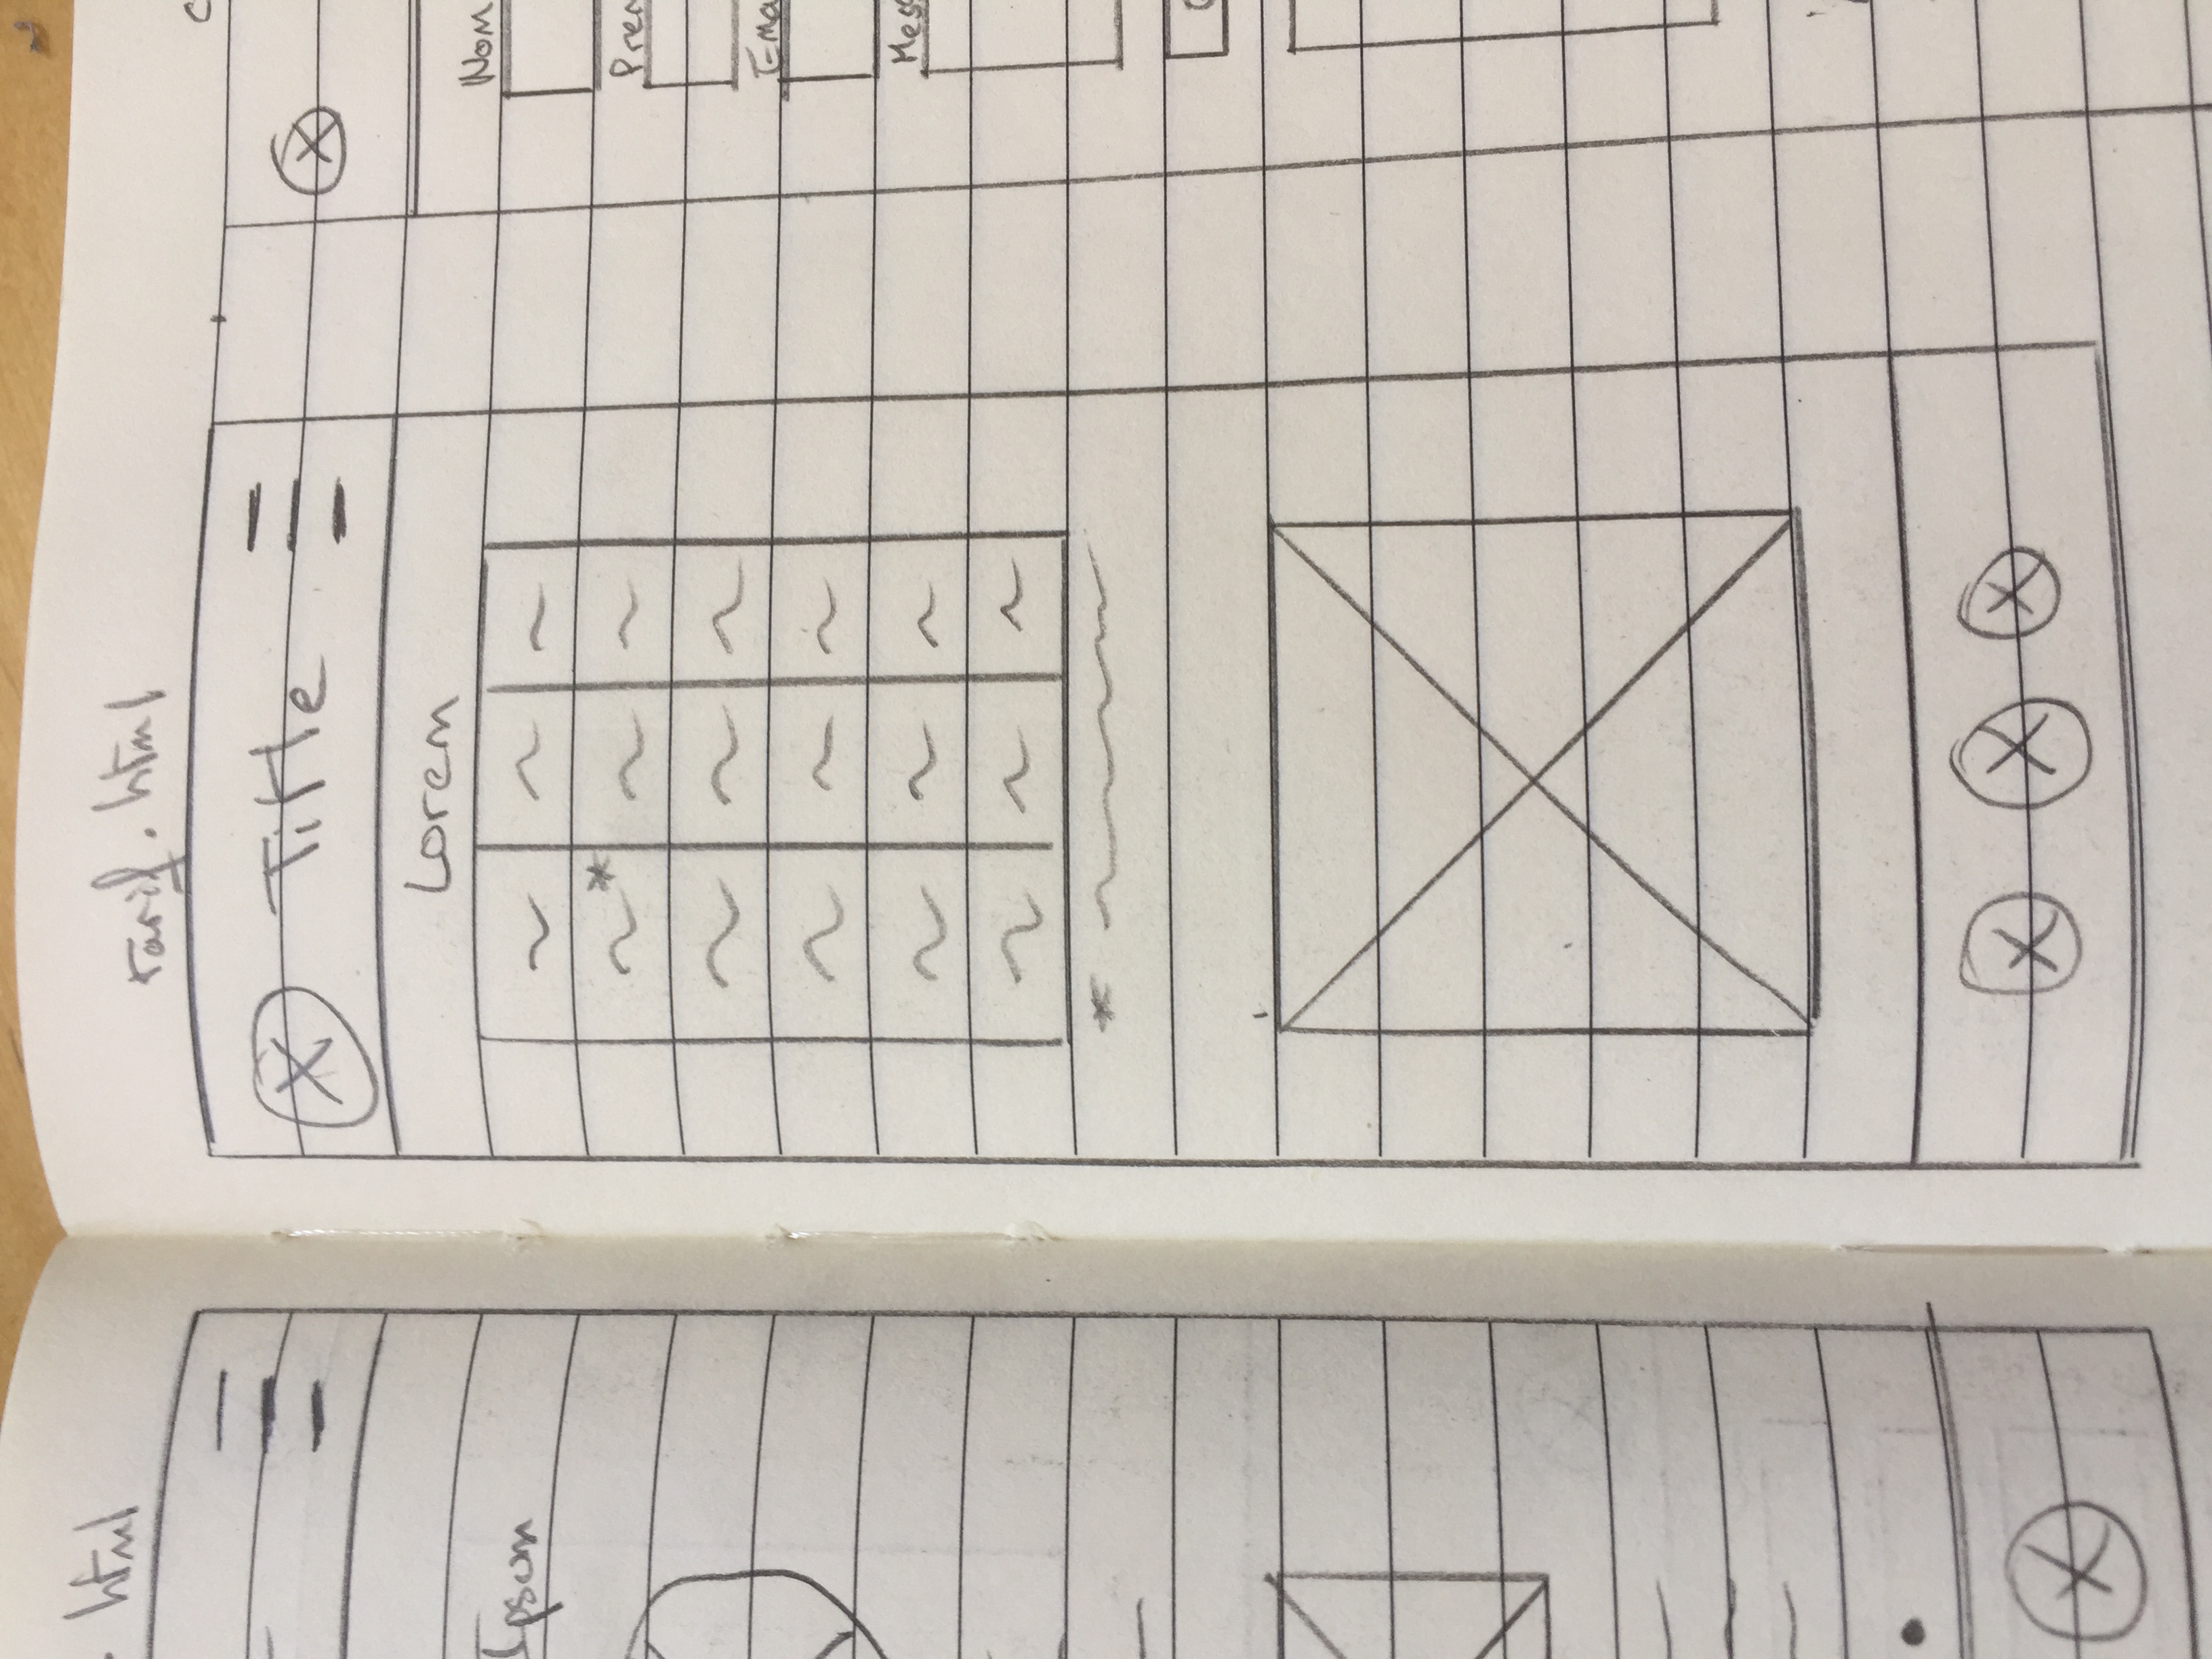 . html
Ipsum
tarif. html
Title
Lorem
*
*
Nom
Email